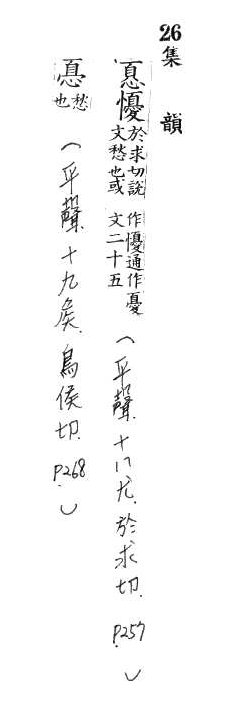 26集韻
㥑懮於求切說文愁也或作懮通作憂文二十五（平聲.十八尤.於求切.P.257）
㥑愁也（平聲.十九矦.烏侯切.P.268）